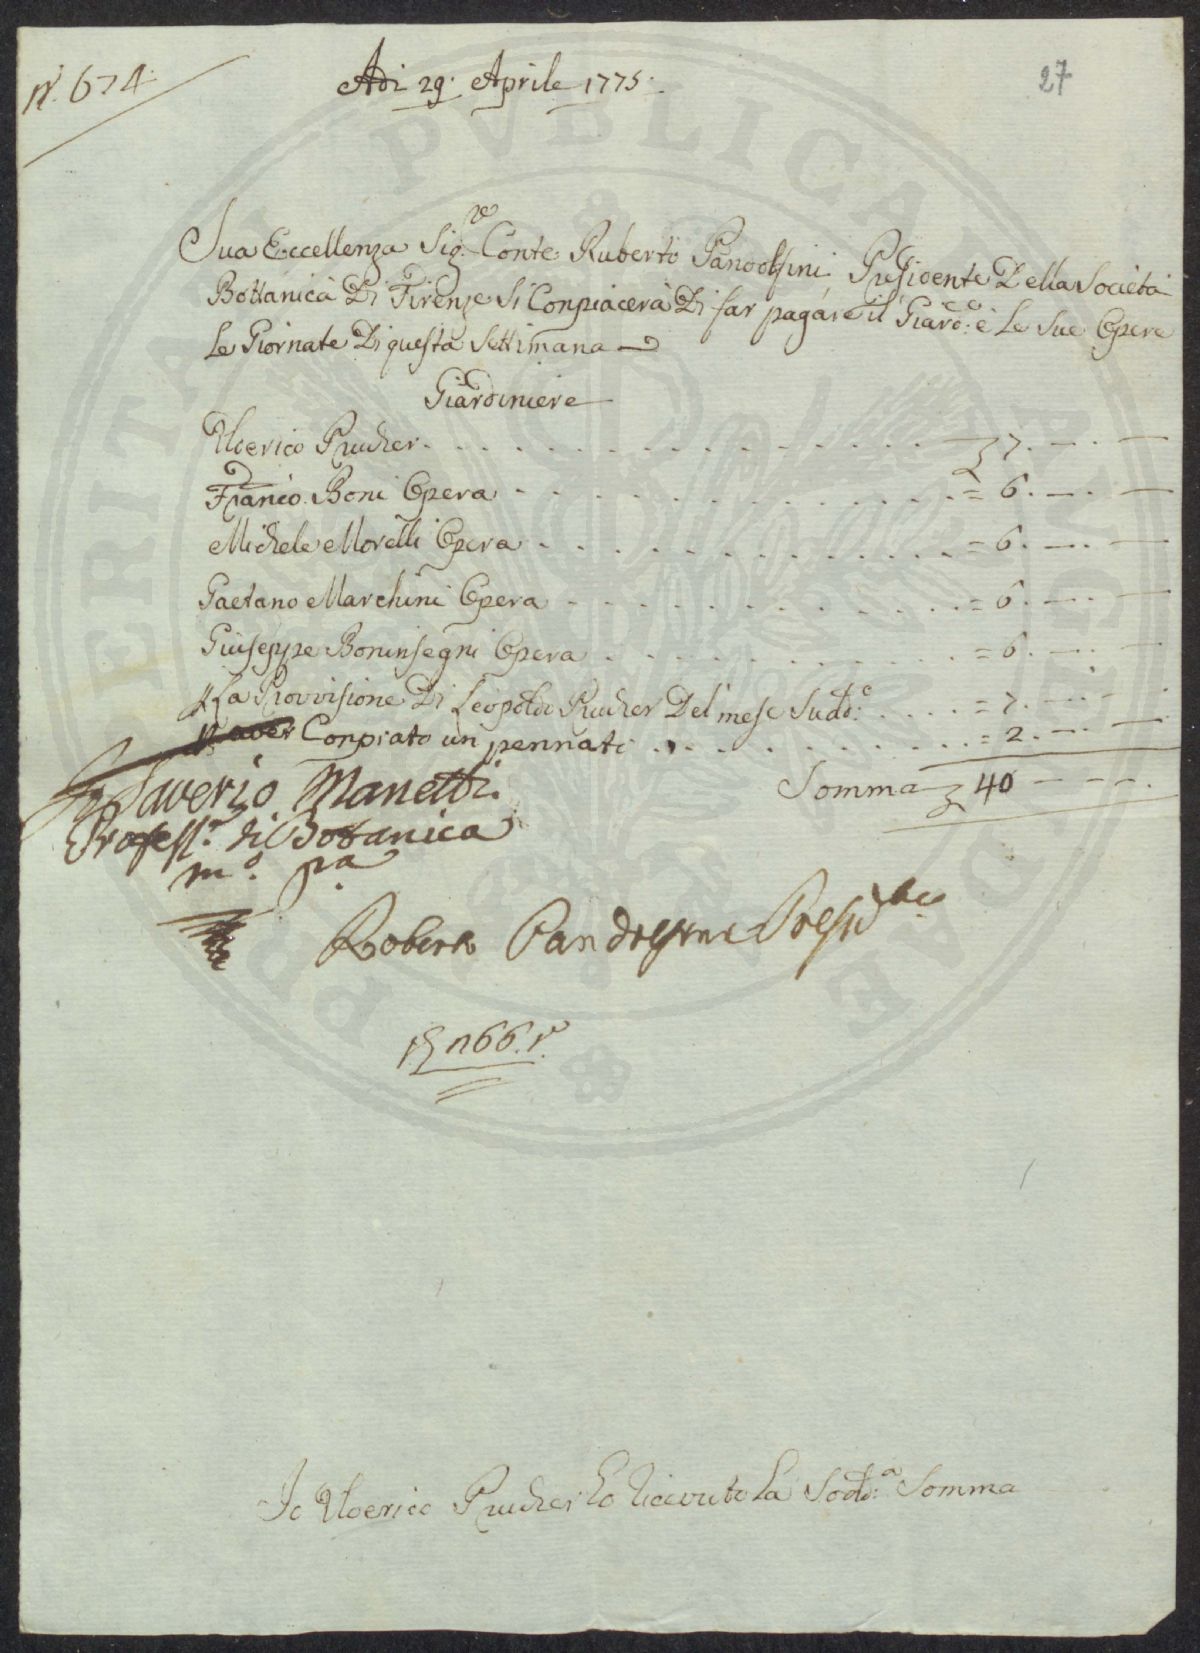 N. 674.
Adi 29. Aprile 1775.
27
Sua Eccellenza Sig.re Conte Ruberto Pandolfini Presidente Della Società
Bottanica Di Firenze Si Conpiacerà Di far pagare il Giard.e e Le Sue Opere
Le Giornate Di questa Settimana
Giardiniere
Uderico Prucher 7. — . —
Franc.o Boni Opera = 6. — . —
Michele Morelli Opera = 6. — . —
Gaetano Marchini Opera = 6. — . —
Giuseppe Boninsegni Opera = 6. — . —
La Provvisione Di Leopoldo Prucher Del mese Sudd.o = 7. — . —
aver Conprato un pennato = 2. — . —
Somma 40 — — — .
Saverio Manetti
Profess.e di Botanica
m.o p.a
Roberto Pandolfini Presid.te
n 66.
Io Uderico Prucher ho ricevuto La Sodd.a Somma
PERITATI PVBLICAE